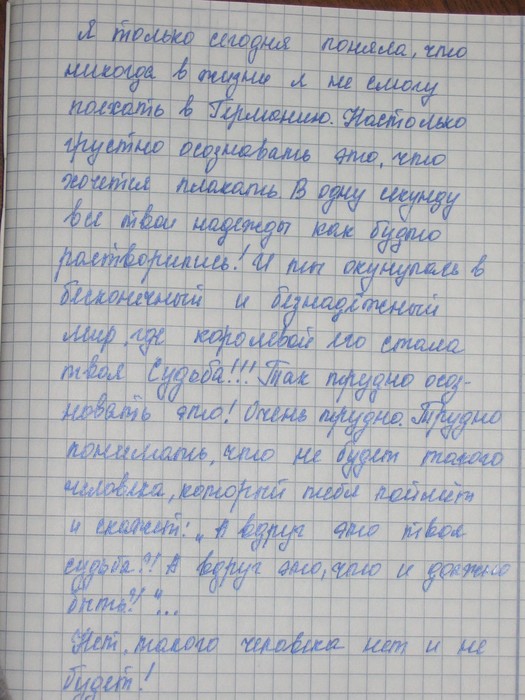 Я только сегодня поняла, что
никогда в жизни я не смогу
поехать в Германию. Настолько
грустно осознавать это, что
хочется плакать. В одну секунду
все твои надежды как будто
растворились! И ты окунулась в
бесконечный и безнадёжный
мир, где королевой его стала
твоя Судьба!!! Так трудно осоз-
навать это! Очень трудно. Трудно
понимать, что не будет такого
человека, который тебя поймёт
и скажет: „А вдруг это твоя
судьба?! А вдруг это, что и должно
быть?!" ...
Нет, такого человека нет и не
будет!